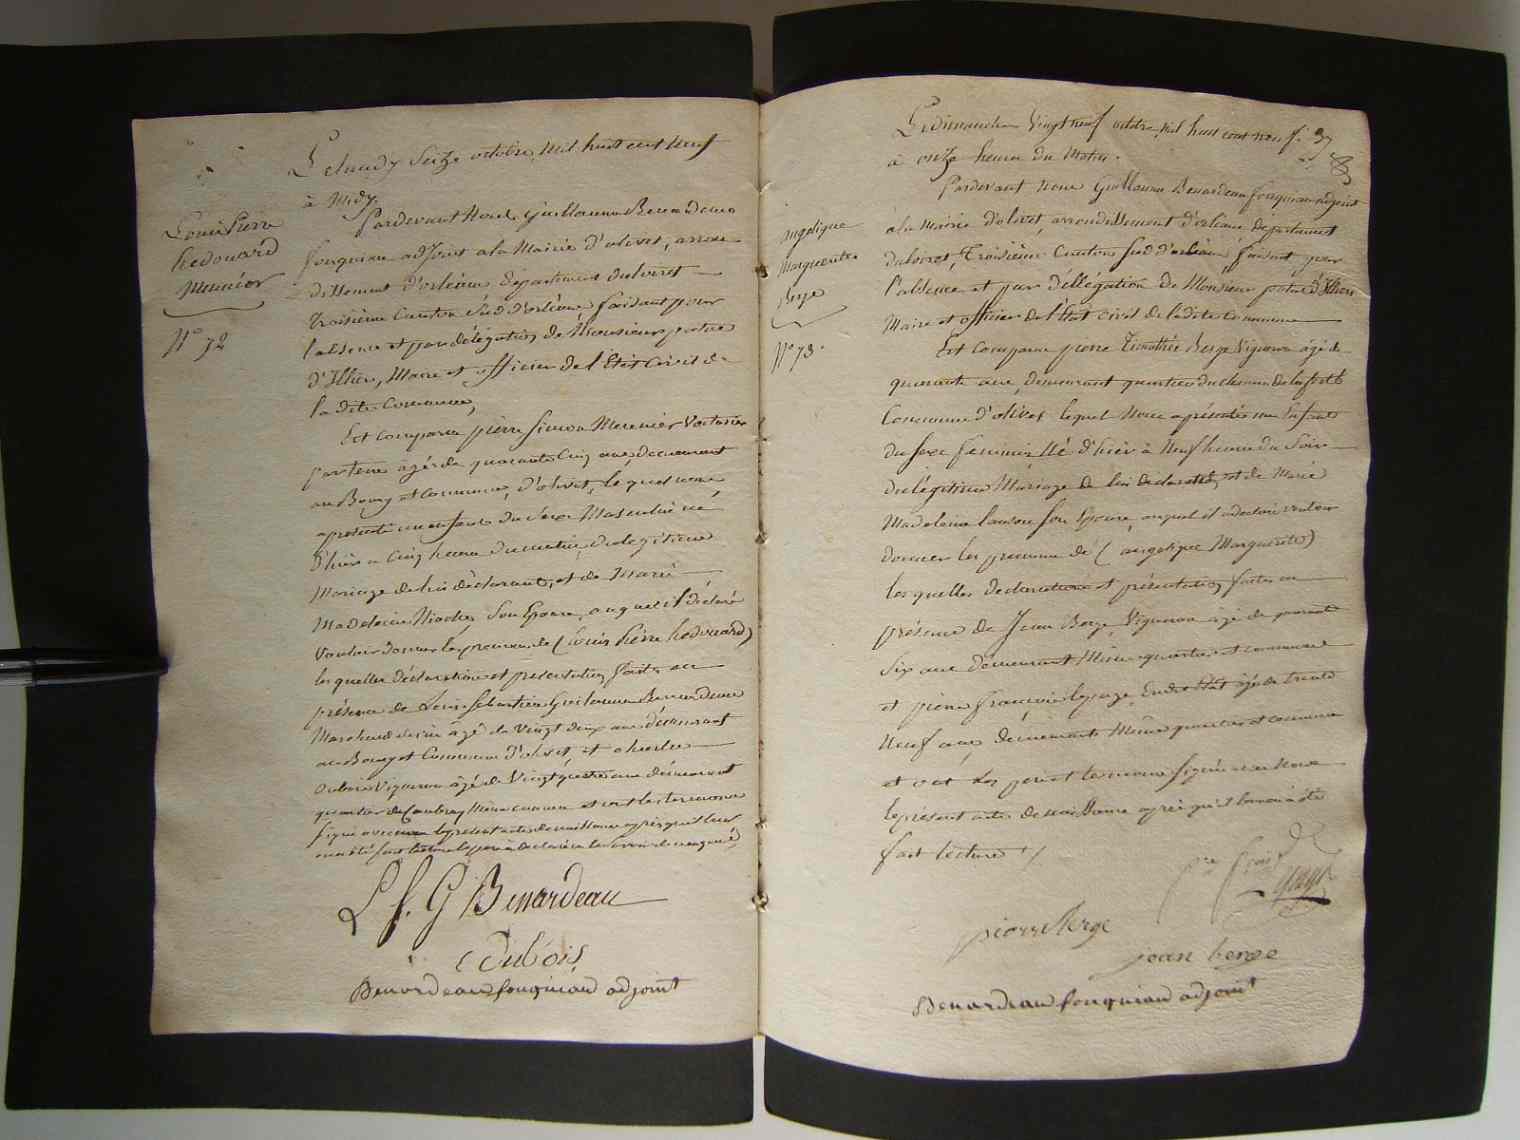 Le lundy Seize octobre Mil huit cent Neuf
à Midy,
Louis Pierre
hedouard
Meunier
N° 72
Pardevant Nous Guillaume Benardeau
fouqueau adJoint a la Mairie d'olivet, arron-
dissement d'orléans Département du loiret
Troisième Canton Sud d'orléans faisant pour
l'absence et par délégation de Monsieur
d'Illiers, Maire et officier de l'Etat Civil de
la dite Commune,
Est comparu pierre Simon Meunier Voiturier
par terre âgé de quarante Cinq ans, demeurant
au Bourg et Commune, d'olivet, lequel nous
a présenté un enfant du Sexe Masculin né
d'hier a Cinq heures du matin du légitime
Mariage de lui déclarant, et de Marie
Madeleine Son Epouse, auquel il a déclaré
Vouloir donner les prenoms de (Louis Pierre hedouard)
les quelles déclaration et présentation faites en
présence de Louis Sébastien Guillaume Benardeau
Marchand de vin âgé de Vingt deux ans demeurant
au Bourg et Commune d'olivet, et charles
Dubois Vigneron âgé de Vingt quatre ans demeurant
quartier du Même commune et ont les temoins
signé avec nous le present acte de naissance après qu'il leur
en a été fait lecture le pere a declaré ne le savoir de ce enquis
L. S. G Benardeau
Dubois
Benardeau fouqueau adjoint
Le dimanche Vingt neuf octobre mil huit cent neuf 37
à onze heures du Matin.
Angelique
Marguerite
Berge
N° 73.
Pardevant nous Guillaume Benardeau fouqueau adjoint
à la Mairie d'olivet, arrondissement d'orléans département
du loiret, Troisième Canton Sud d'orléans, faisant pour
l'absence et par délégation de Monsieur d'Illiers
Maire et officier de l'Etat civil de la dite Commune
Est Comparu pierre Timothée Berge Vigneron âgé de
quarante ans, demeurant quartier du chemin de la ferté
Commune d'olivet lequel Nous a présenté un Enfant
du Sexe feminin Né d'hier à Neuf heures du Soir
du légitime Mariage de lui déclarant, et de Marie
Madeleine Son Epouse, auquel il a déclaré vouloir
donner les prenoms de (angelique Marguerite)
les quelles déclaration et présentation faites en
présence de Jean Berge Vigneron âgé de quarante
Six ans demeurant Même quartier et commune
et pierre françois lepage dudit Etat âgé de trente
Neuf ans, demeurant Même quartier et commune
et ont les pere et temoins signé avec Nous
le present acte de naissance après qu'il leur en a été
fait lecture
Pre fçois lepage
pierre Berge
jean berge
Benardeau fouqueau adjoint